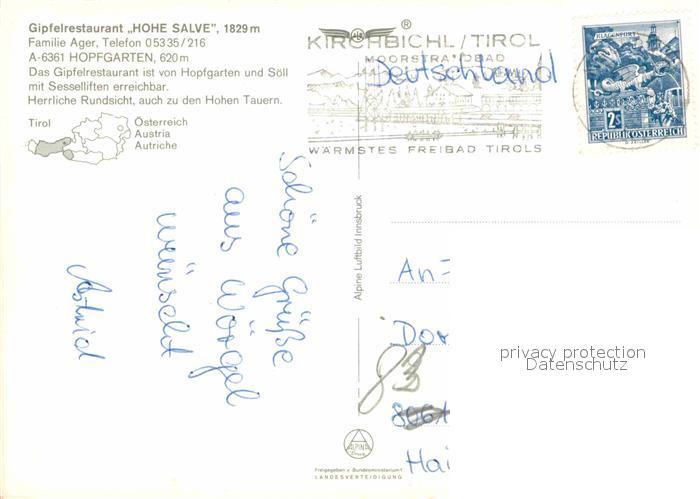 Gipfelrestaurant „HOHE SALVE", 1829 m
Familie Ager, Telefon 0 53 35 / 216
A-6361 HOPFGARTEN, 620 m
Das Gipfelrestaurant ist von Hopfgarten und Söll
mit Sesselliften erreichbar.
Herrliche Rundsicht, auch zu den Hohen Tauern.
Tirol
Österreich
Austria
Autriche
®
KIRCHBICHL/TIROL
MOORSTRANDBAD
WÄRMSTES FREIBAD TIROLS
Deutschland
KLAGENFURT
2S
REPUBLIK ÖSTERREICH
Schöne Grüße
aus Wörgel
wünscht
Astrid
Alpine Luftbild Innsbruck
An=
Dor
8061
Hai
privacy protection
Datenschutz
ALPINE
Freigegeben v. Bundesministerium f.
LANDESVERTEIDIGUNG